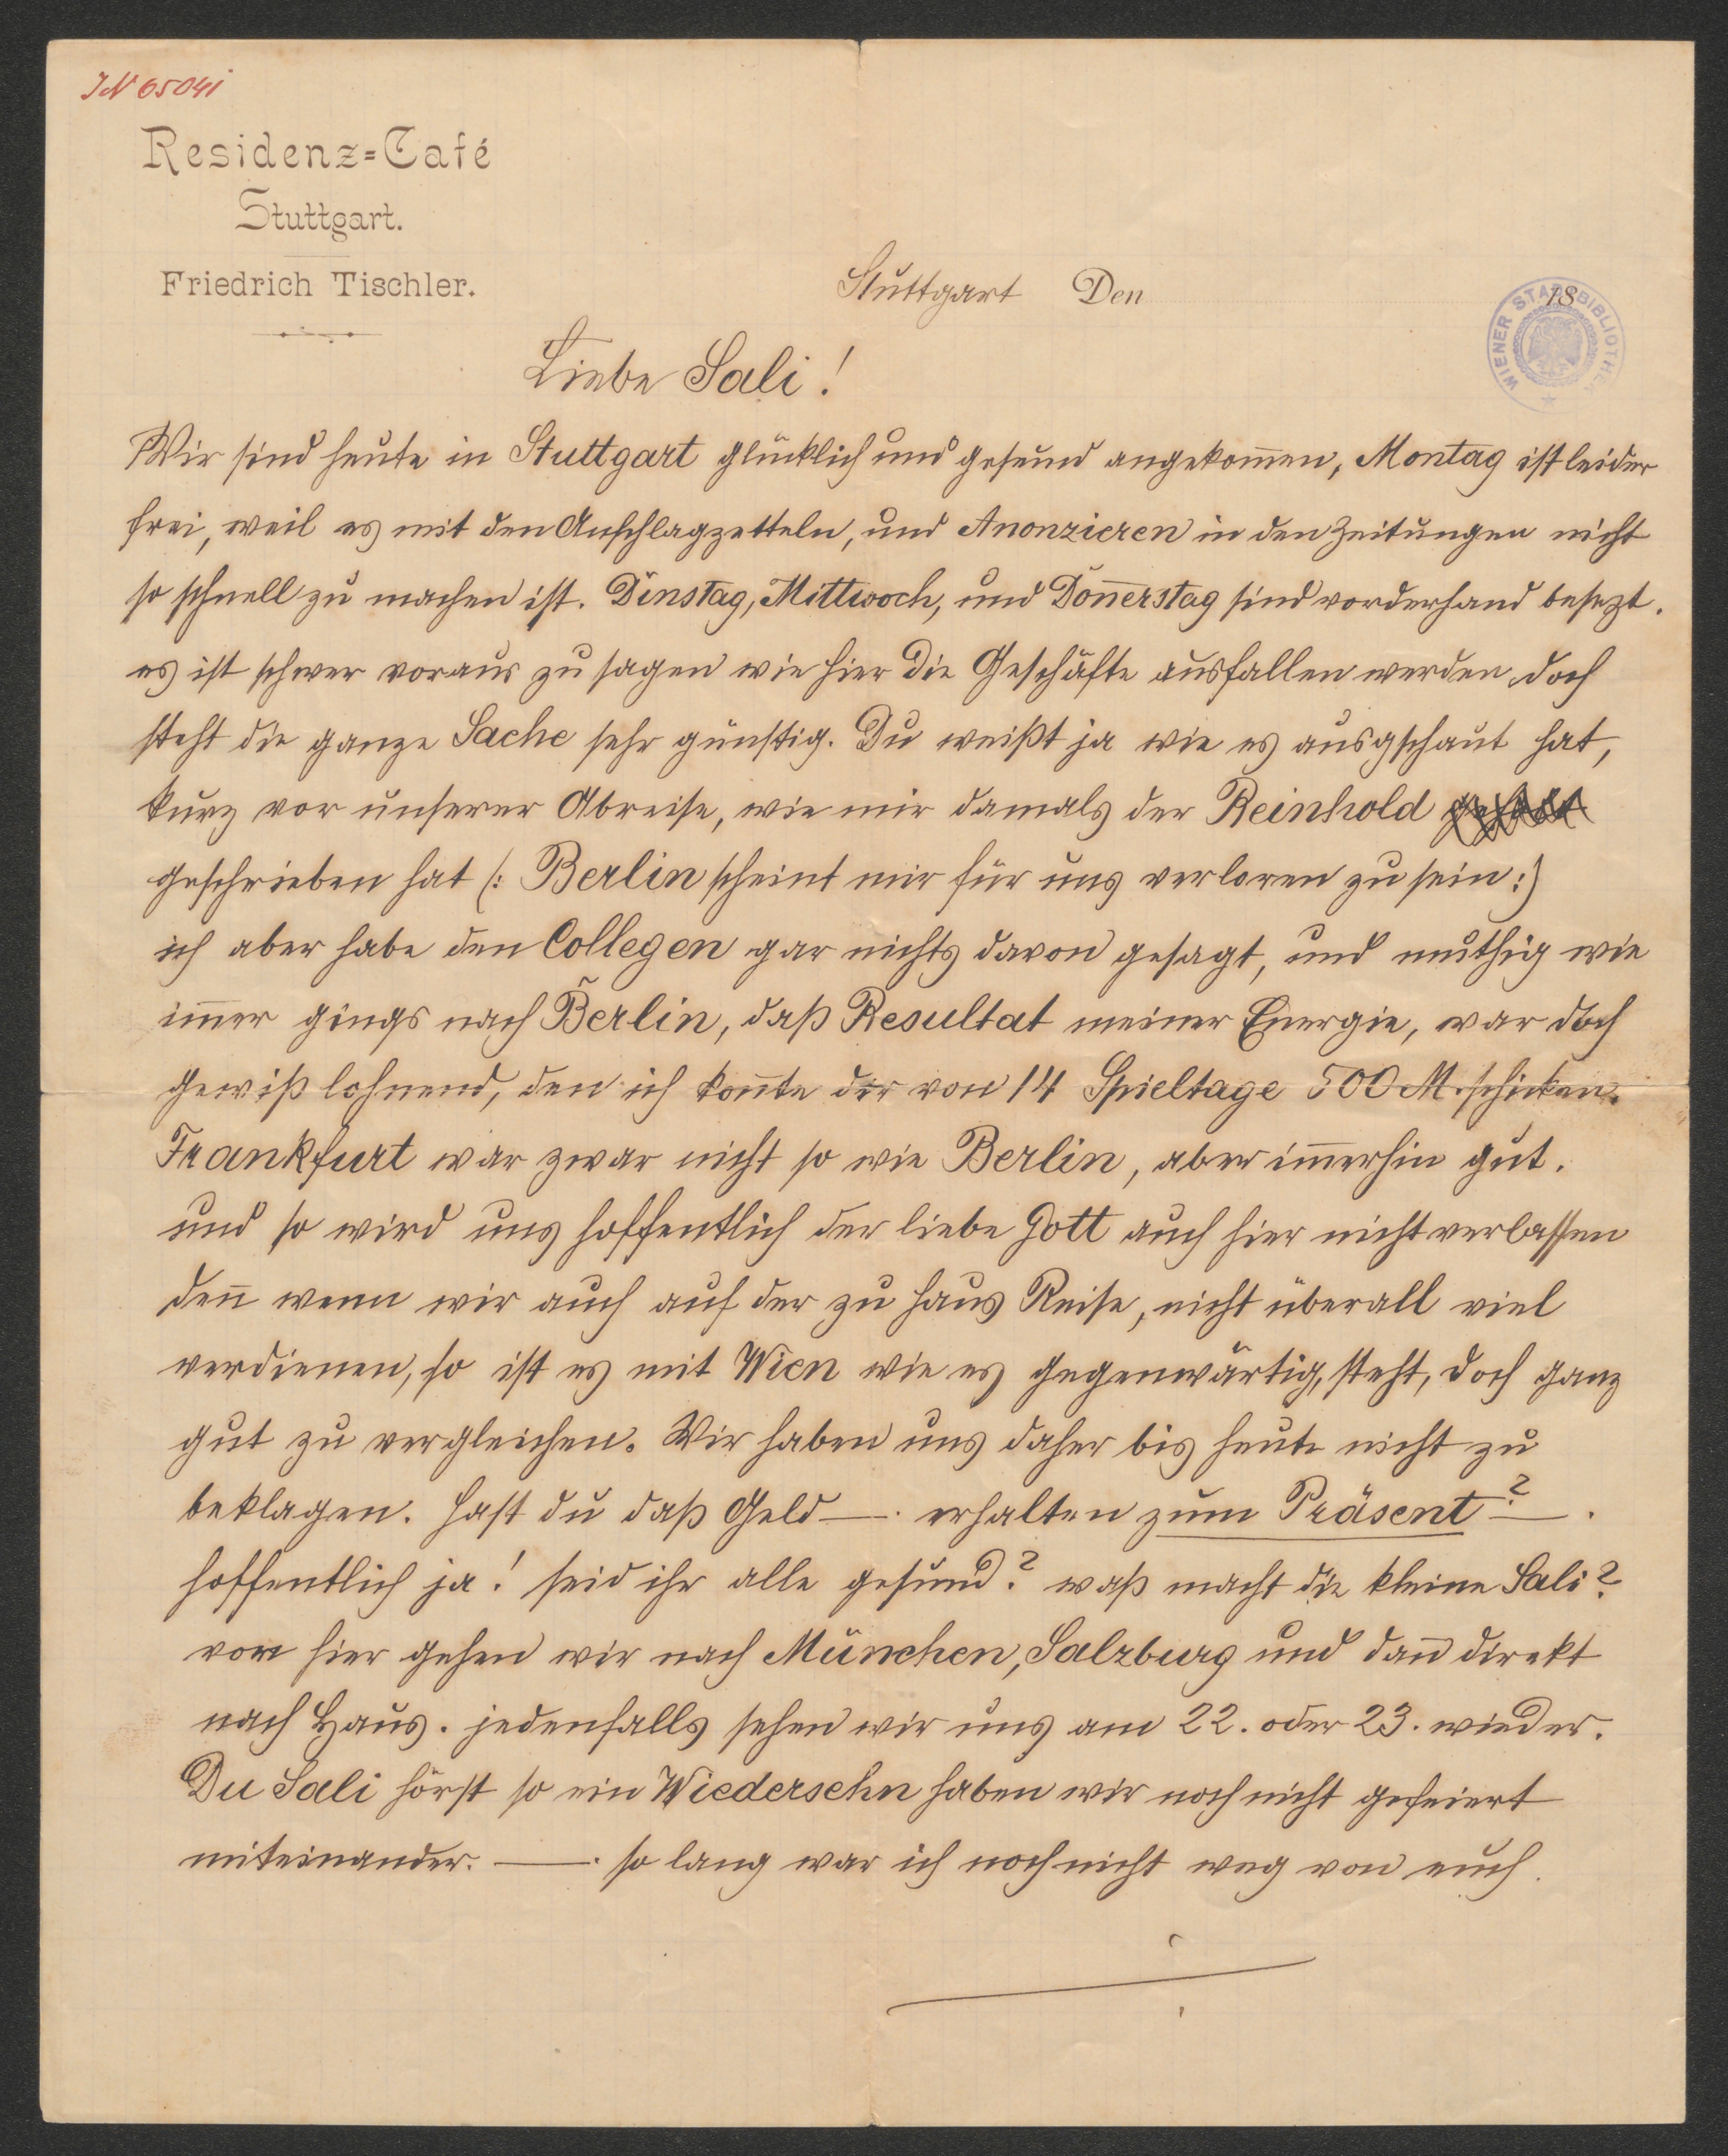 IN 65041
Residenz=Café
Stuttgart.
Friedrich Tischler.
Stuttgart Den 18
WIENER STADTBIBLIOTHEK
Liebe Sali!
Wir sind heute in Stuttgart glücklich und gesund angekom̅en, Montag ist leider
frei, weil es mit den Anschlagzetteln, und Anonzieren in den Zeitungen nicht
so schnell zu machen ist. Dinstag, Mittwoch, und Don̅erstag sind vorderhand besezt.
es ist schwer voraus zu sagen wie hier die Geschäfte ausfallen werden doch
steht die ganze Sache sehr günstig. Du weißt ja wie es ausgschaut hat,
kurz vor unserer Abreise, wie mir damals der Reinhold
geschrieben hat (: Berlin scheint mir für uns verloren zu sein:)
ich aber habe den Collegen gar nichts davon gesagt, und muthig wie
im̅er gings nach Berlin, daß Resultat meiner Energie, war doch
gewiß lohnend, den ich kon̅te dir von 14 Spieltage 500 M. schicken.
Frankfurt war zwar nicht so wie Berlin, aber im̅erhin gut.
und so wird uns hoffentlich der liebe Gott auch hier nicht verlassen
den̅ wenn wir auch auf der zu Haus Reise, nicht überall viel
verdienen, so ist es mit Wien wie es gegenwärtig, steht, doch ganz
gut zu vergleichen. Wir haben uns daher bis heute nicht zu
beklagen. Hast du daß Geld —. erhalten zum Präsent? —.
hoffentlich ja! seid ihr alle gesund? waß macht die kleine Sali?
von hier gehen wir nach München, Salzburg und dan̅ direkt
nach Haus. jedenfalls sehen wir uns am 22. oder 23. wieder.
Du Sali hörst so ein Wiedersehn haben wir noch nicht gefeiert
miteinander. —. so lang war ich noch nicht weg von euch.